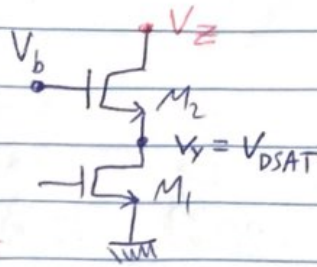 V_Z
V_b
M_2
V_Y = V_DSAT
M_1